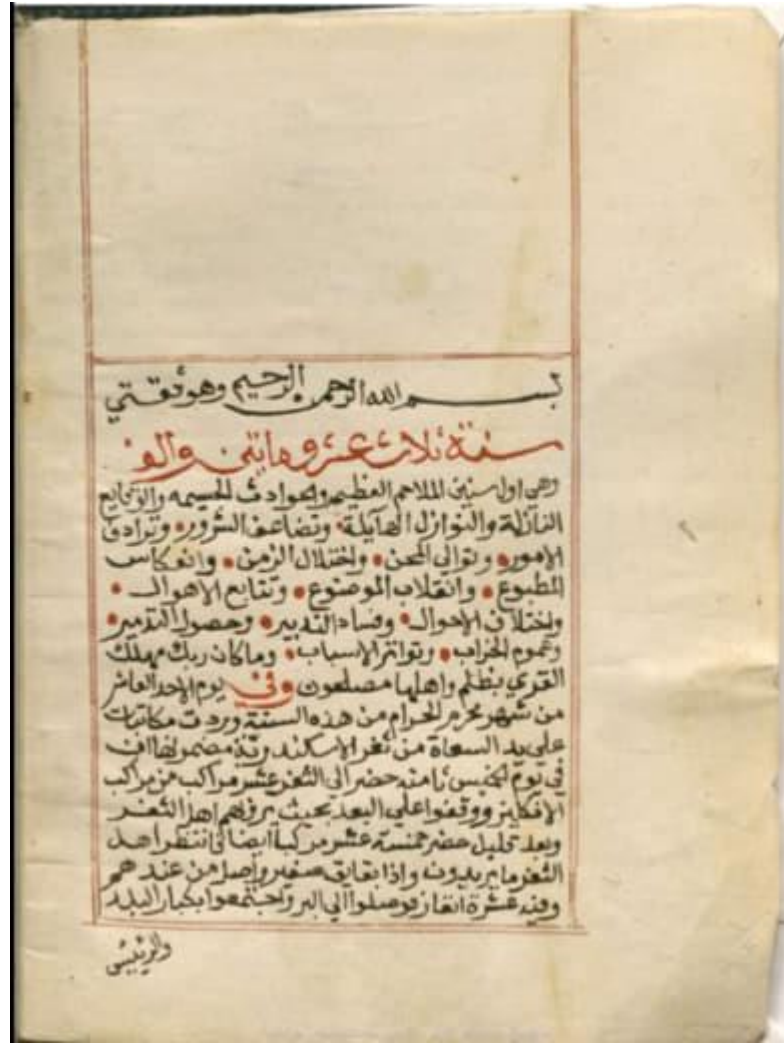 بسم الله الرحمن الرحيم وهو ثقتي
سنة ثلاث عشر ومايتين والف
وهي اول سنين الملاحم العظيمه والحوادث الجسيمه والوقايع
النازلة والنوازل الهايلة • وتضاعف الشرور • وترادف
الامور • وتوالي المحن • واختلال الزمن • وانعكاس
المطبوع • وانقلاب الموضوع • وتتابع الاهوال •
واختلاف الاحوال • وفساد التدبير • وحصول التدمير •
وعموم الخراب • وتواتر الاسباب • وما كان ربك مهلك
القري بظلم واهلها مصلحون وفي يوم الاحد العاشر
من شهر محرم الحرام من هذه السنة وردت مكاتبات
علي يد السعاة من ثغر الاسكندرية مضمونها ان
في يوم الخميس ثامنه حضر الي الثغر عشر مراكب من مراكب
الانكليز ووقفوا علي البعد بحيث يرؤهم اهل الثغر
وبعد قليل حضر خمسة عشر مركبا ايضا فانتظر اهل
الثغر ما يريدون واذا بقايق صغير واصل من عندهم
وفيه عشرة انفار فوصلوا الي البر واجتمعوا بكبار البلد
والرييس